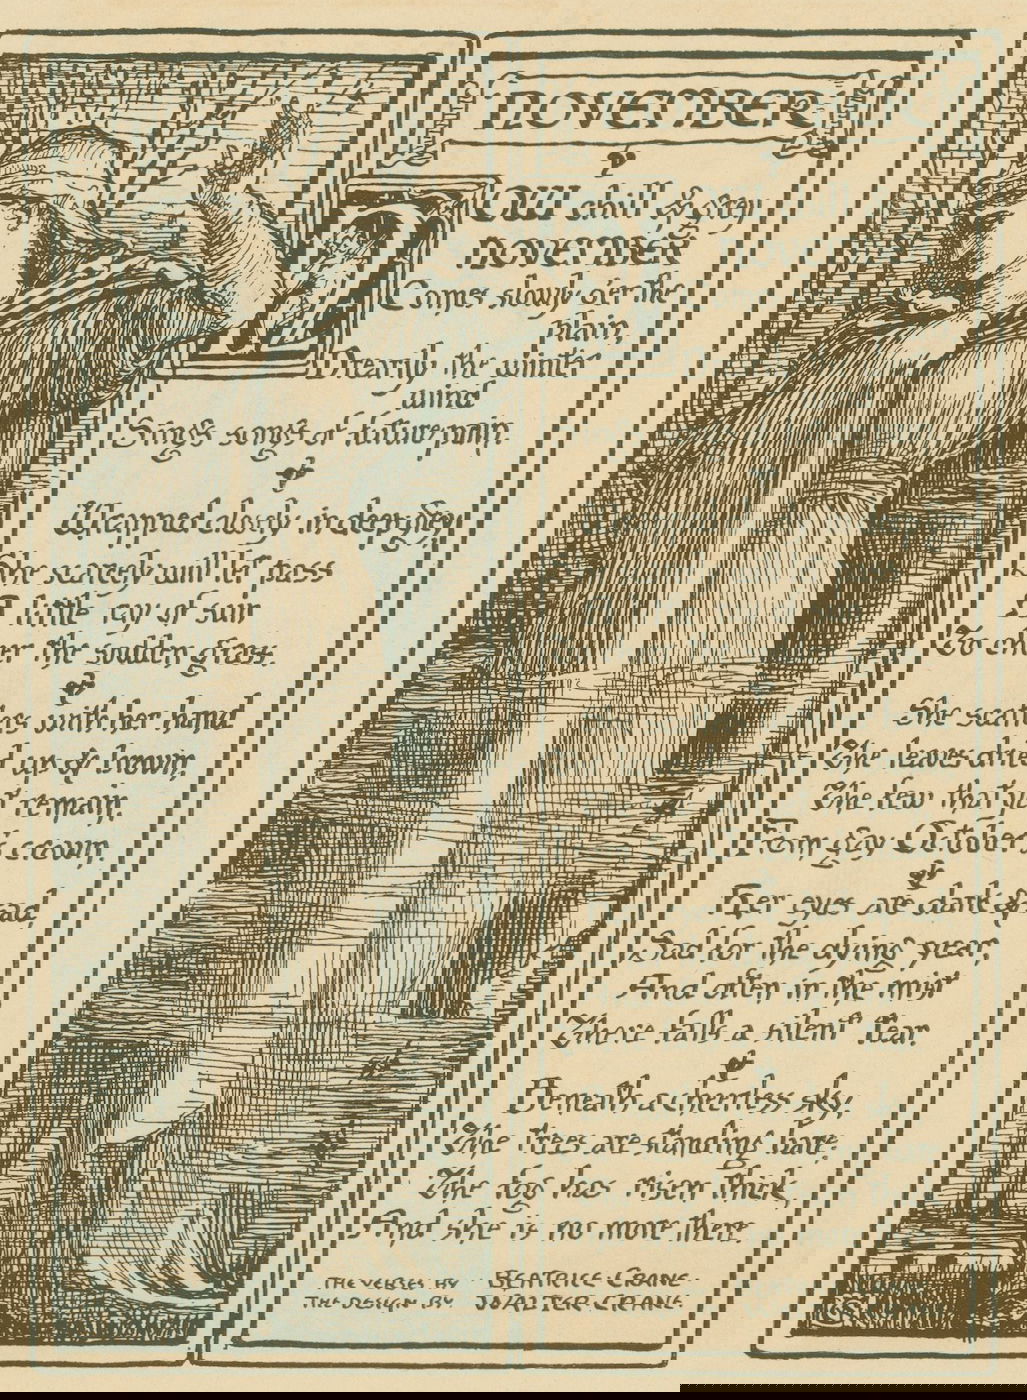 NOVEMBER
NOW chill & grey
NOVEMBER
Comes slowly o'er the
plain,
Drearily the winter
wind
Sings songs of future pain.
Wrapped closely in deep grey,
She scarcely will let pass
A little ray of sun
To cheer the sodden grass.
She scatters with her hand
The leaves dried up & brown,
The few that yet remain,
From gay October's crown.
Her eyes are dark & sad,
Sad for the dying year,
And often in the mist
There falls a silent tear.
Beneath a cheerless sky,
The trees are standing bare;
The fog has risen thick,
And she is no more there.
THE VERSES BY BEATRICE CRANE.
THE DESIGN BY WALTER CRANE.